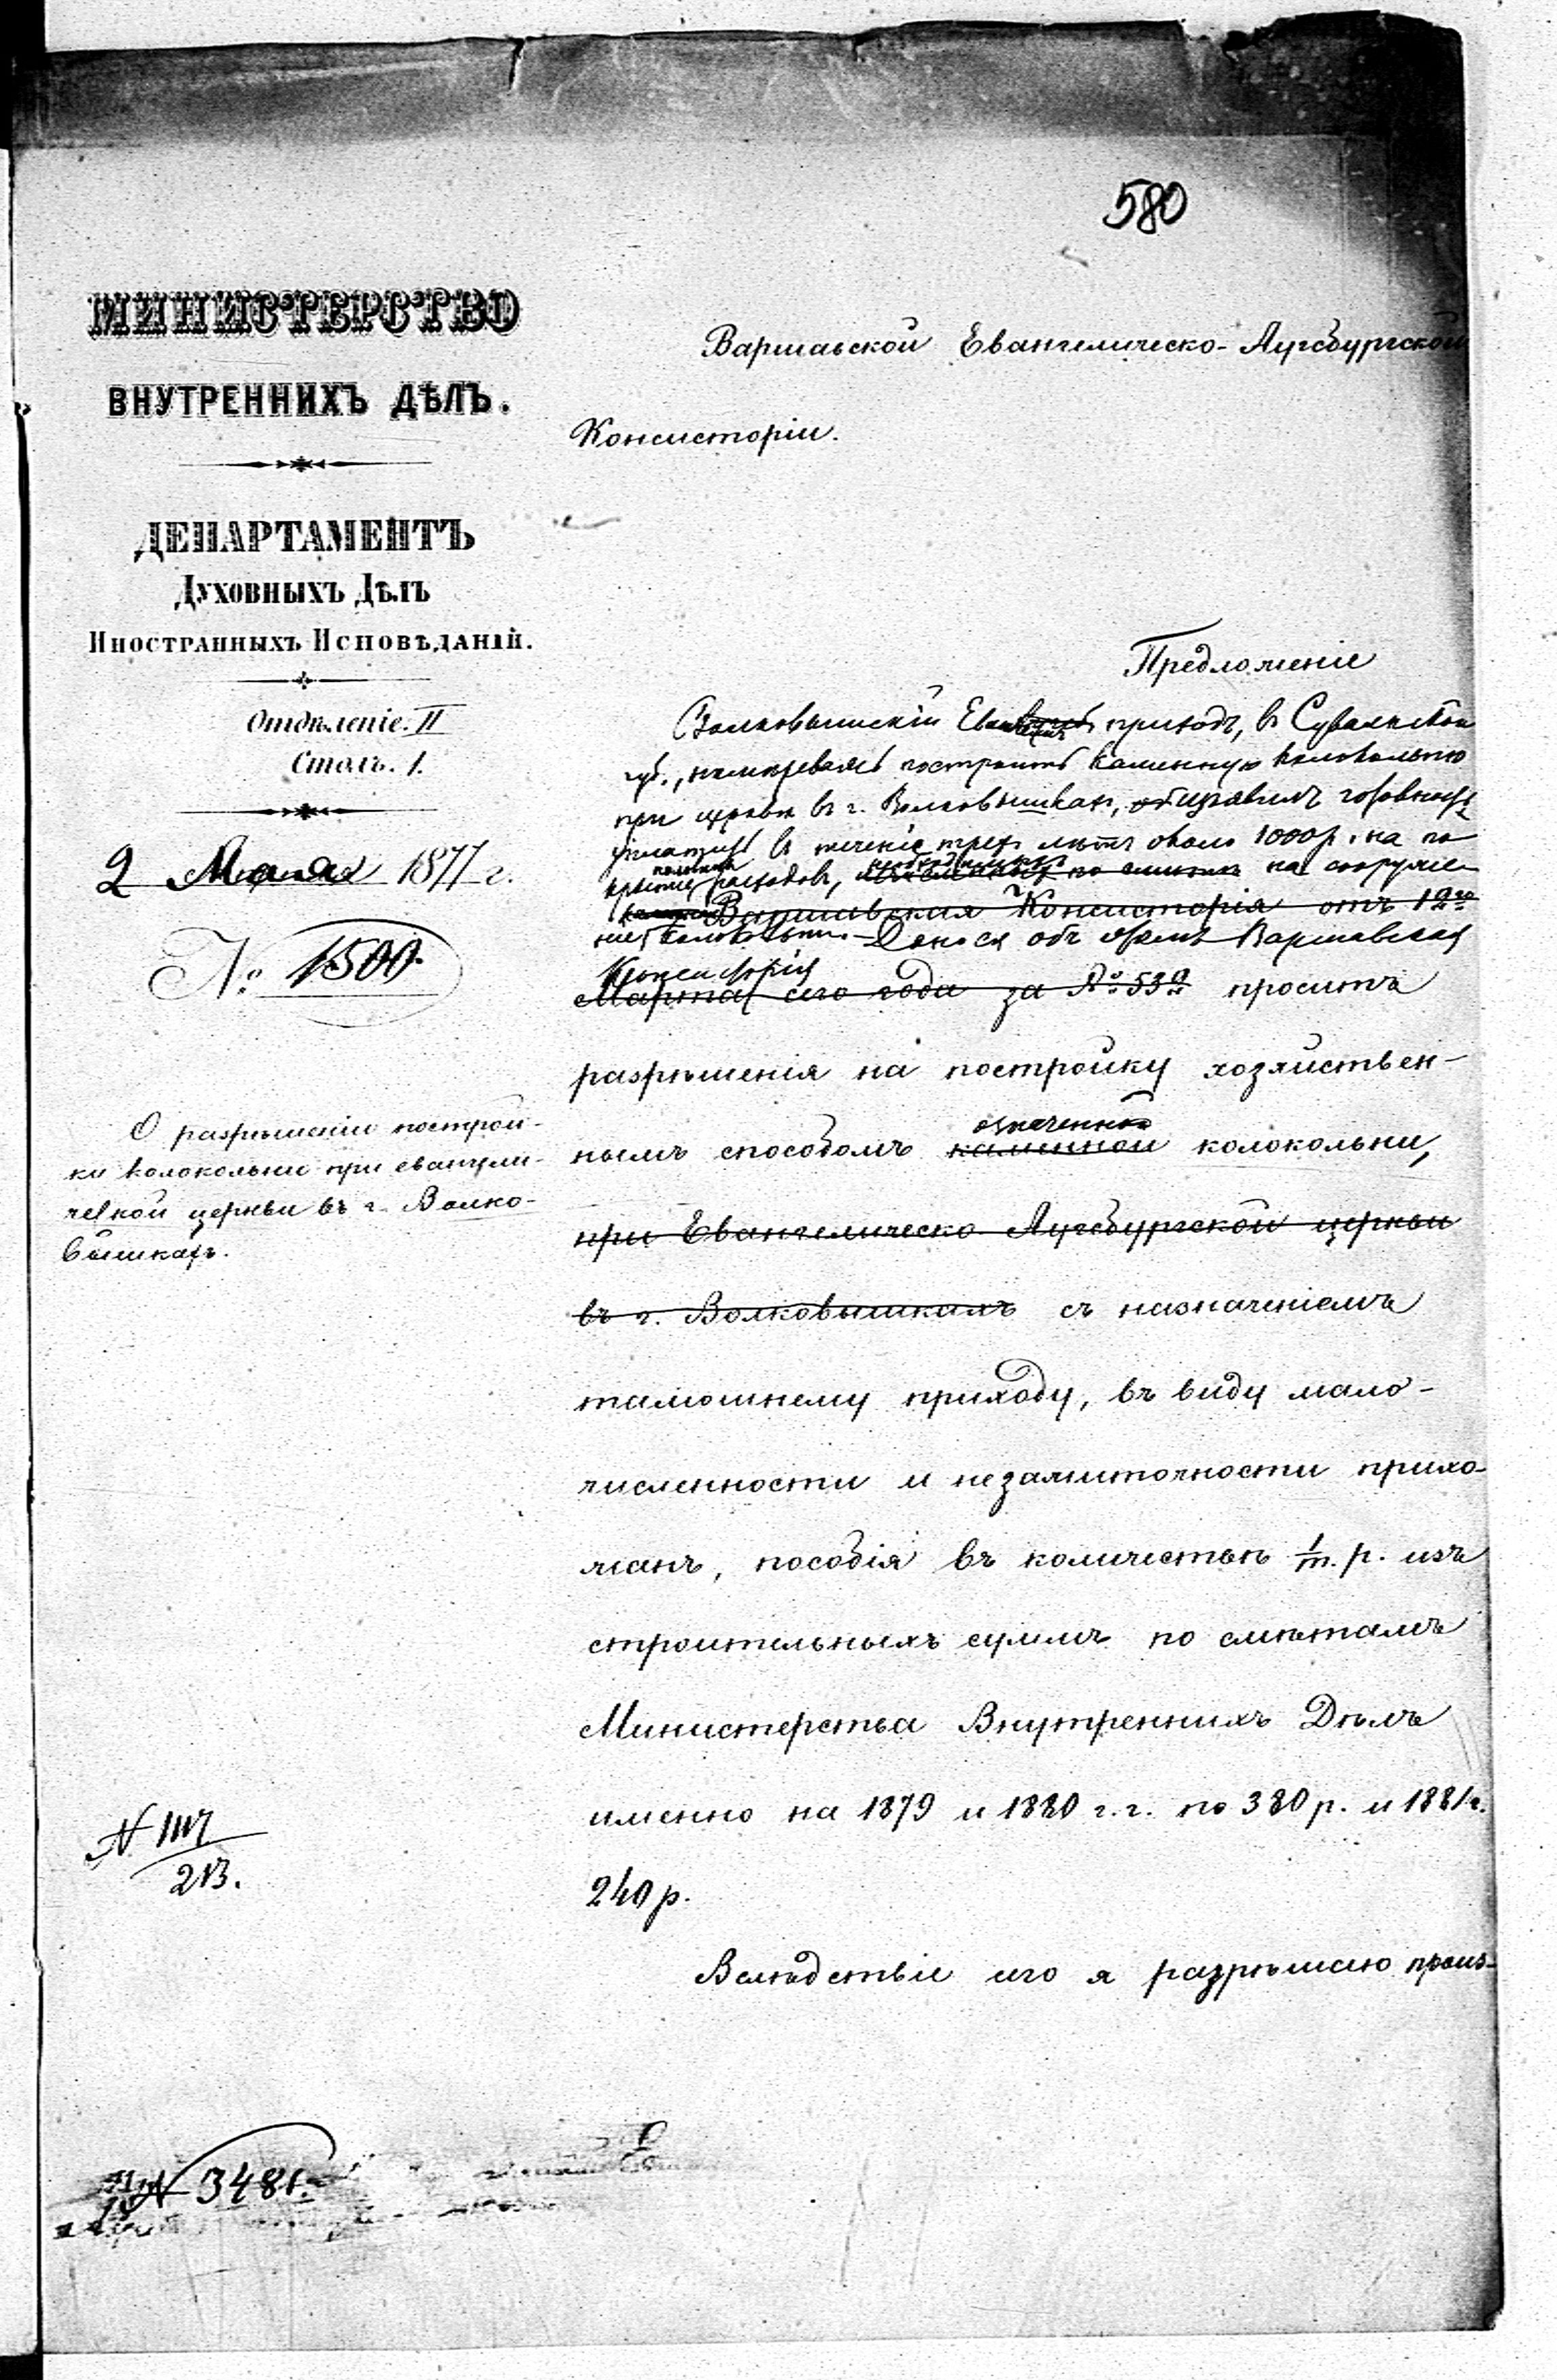 580
МИНИСТЕРСТВО
ВНУТРЕННИХЪ ДѢЛЪ.
ДЕПАРТАМЕНТЪ
Духовныхъ Дѣлъ
Иностранныхъ Исповѣданій.
Отдѣленіе. II
Столъ. 1.
2 Мая 1877 г.
№ 1500.
О разрѣшеніи построй-
ки колокольни при евангели-
ческой церкви въ г. Волко-
вышкахъ.
N 1117
213.
N 3481.
Варшавской Евангелическо-Аугсбургской
Консисторіи.
Предложеніе
Волковышскій приходъ, въ Сувалкской
губ., намѣреваясь построить каменную колокольню
при церкви въ г. Волковышкахъ, изъявилъ готовность
уплатить въ теченіе трехъ лѣтъ около 1000 р. на по
крытіе расходовъ, необходимыхъ по смѣтѣ на сооруже
Варшавская Консисторія отъ 12го
ніе колокольни. Донося объ этомъ Варшавская
Консисторія
Марта сего года за № 539 проситъ
разрѣшенія на постройку хозяйствен-
означенной
нымъ способомъ каменной колокольни,
при Евангелическо Аугсбургской церкви
въ г. Волковышкахъ съ назначеніемъ
тамошнему приходу, въ виду мало-
численности и незажиточности прихо-
жанъ, пособія въ количествѣ 1/т. р. изъ
строительныхъ суммъ по смѣтамъ
Министерства Внутреннихъ Дѣлъ
именно на 1879 и 1880 г.г. по 380 р. и 1881 г.
240 р.
Вслѣдствіе сего я разрѣшаю произ-